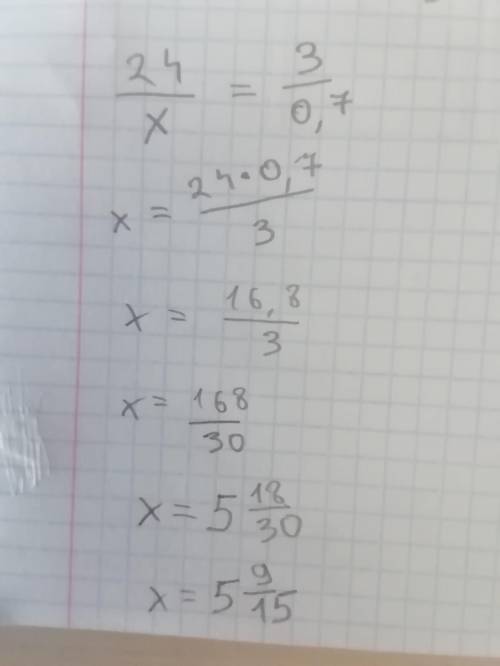 24/x = 3/0,7
x = 24·0,7/3
x = 16,8/3
x = 168/30
x = 5 18/30
x = 5 9/15